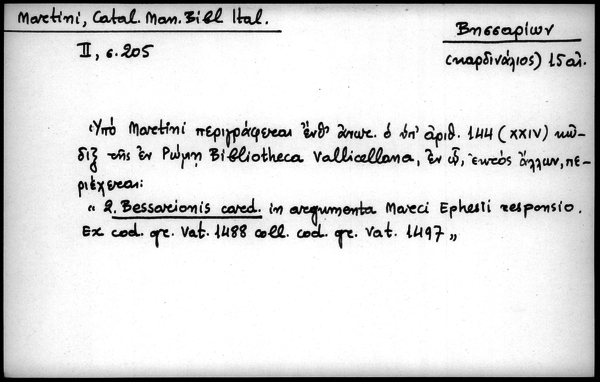 Martini, Catal. Man. Bibl Ital.
II, σ. 205
Βησσαρίων
(καρδινάλιος) 15 αι.
Ὑπό Martini περιγράφεται ἐνθ' ἀνωτ. ὁ ὑπ' ἀριθ. 144 (XXIV) κώ-
διξ τῆς ἐν Ρώμῃ Bibliotheca Vallicellana, ἐν ᾧ, ἐκτός ἄλλων, πε-
ριέχεται:
« 2. Bessarionis card. in argumenta Marci Ephesii responsio.
Ex cod. gr. Vat. 1488 coll. cod. gr. Vat. 1497 »